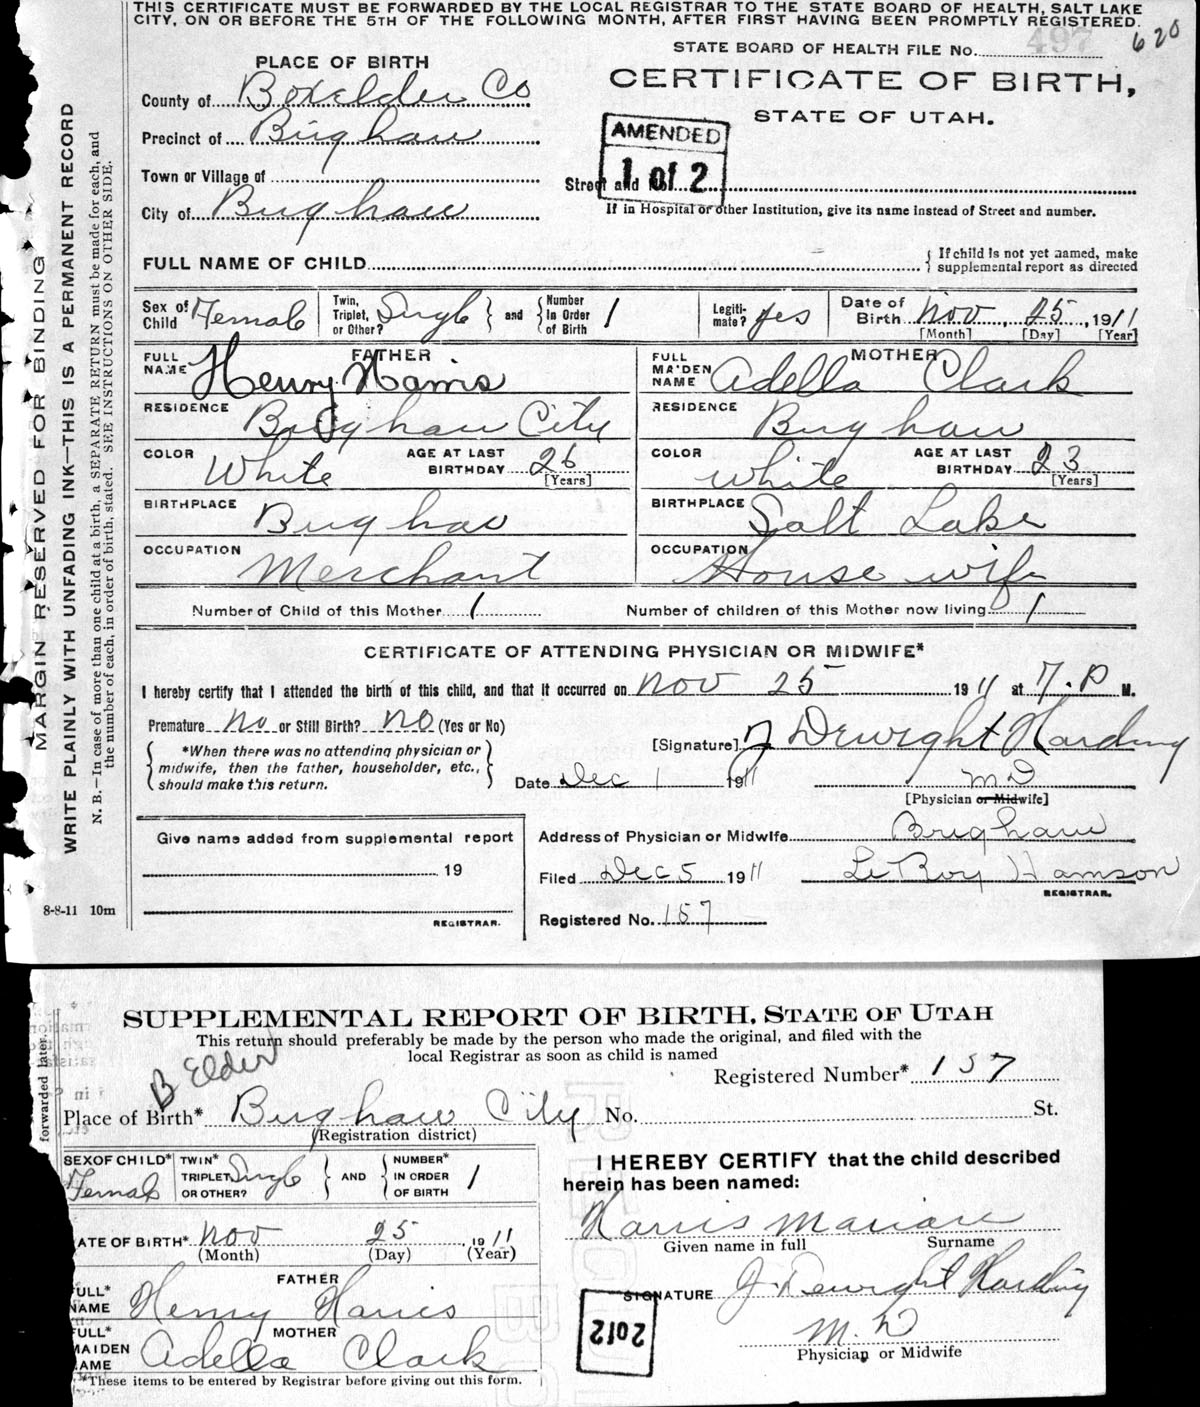 THIS CERTIFICATE MUST BE FORWARDED BY THE LOCAL REGISTRAR TO THE STATE BOARD OF HEALTH, SALT LAKE
CITY, ON OR BEFORE THE 5TH OF THE FOLLOWING MONTH, AFTER FIRST HAVING BEEN PROMPTLY REGISTERED.
STATE BOARD OF HEALTH FILE No. 497 620
PLACE OF BIRTH
CERTIFICATE OF BIRTH,
County of Boxelder Co
STATE OF UTAH.
Precinct of Brigham
AMENDED
1 of 2
Town or Village of
Street and No.
City of Brigham
If in Hospital or other Institution, give its name instead of Street and number.
FULL NAME OF CHILD
If child is not yet named, make
supplemental report as directed
Sex of Child Female
Twin, Triplet, or Other? Single and Number In Order of Birth 1
Legitimate? yes
Date of Birth Nov 25, 1911
[Month] [Day] [Year]
FATHER
FULL NAME Henry Harris
RESIDENCE Brigham City
COLOR White AGE AT LAST BIRTHDAY 26
[Years]
BIRTHPLACE Brigham
OCCUPATION Merchant
MOTHER
FULL MAIDEN NAME Adella Clark
RESIDENCE Brigham
COLOR White AGE AT LAST BIRTHDAY 23
[Years]
BIRTHPLACE Salt Lake
OCCUPATION House wife
Number of Child of this Mother 1 Number of children of this Mother now living 1
CERTIFICATE OF ATTENDING PHYSICIAN OR MIDWIFE*
I hereby certify that I attended the birth of this child, and that it occurred on Nov 25 1911 at 7. P M.
Premature No or Still Birth? No (Yes or No)
*When there was no attending physician or
midwife, then the father, householder, etc.,
should make this return.
[Signature] J Dewight Harding
Date Dec 1 1911 M D
[Physician or Midwife]
Give name added from supplemental report
19
REGISTRAR.
Address of Physician or Midwife Brigham
Filed Dec 5 1911 LeRoy
REGISTRAR.
Registered No. 157
8-8-11 10m
MARGIN RESERVED FOR BINDING
WRITE PLAINLY WITH UNFADING INK—THIS IS A PERMANENT RECORD
N. B.—In case of more than one child at a birth, a SEPARATE RETURN must be made for each, and
the number of each, in order of birth, stated. SEE INSTRUCTIONS ON OTHER SIDE.
SUPPLEMENTAL REPORT OF BIRTH, STATE OF UTAH
This return should preferably be made by the person who made the original, and filed with the
local Registrar as soon as child is named
B Elder
Registered Number* 157
Place of Birth* Brigham City No. St.
(Registration district)
SEX OF CHILD* Female
TWIN* TRIPLET OR OTHER? Single AND NUMBER* IN ORDER OF BIRTH 1
ATE OF BIRTH* Nov 25, 1911
(Month) (Day) (Year)
FATHER
FULL* NAME Henry Harris
MOTHER
FULL* MAIDEN NAME Adella Clark
*These items to be entered by Registrar before giving out this form.
I HEREBY CERTIFY that the child described
herein has been named:
Harris Marian
Given name in full Surname
SIGNATURE J. Dewight Harding
M. D
Physician or Midwife
2 of 2
forwarded later.